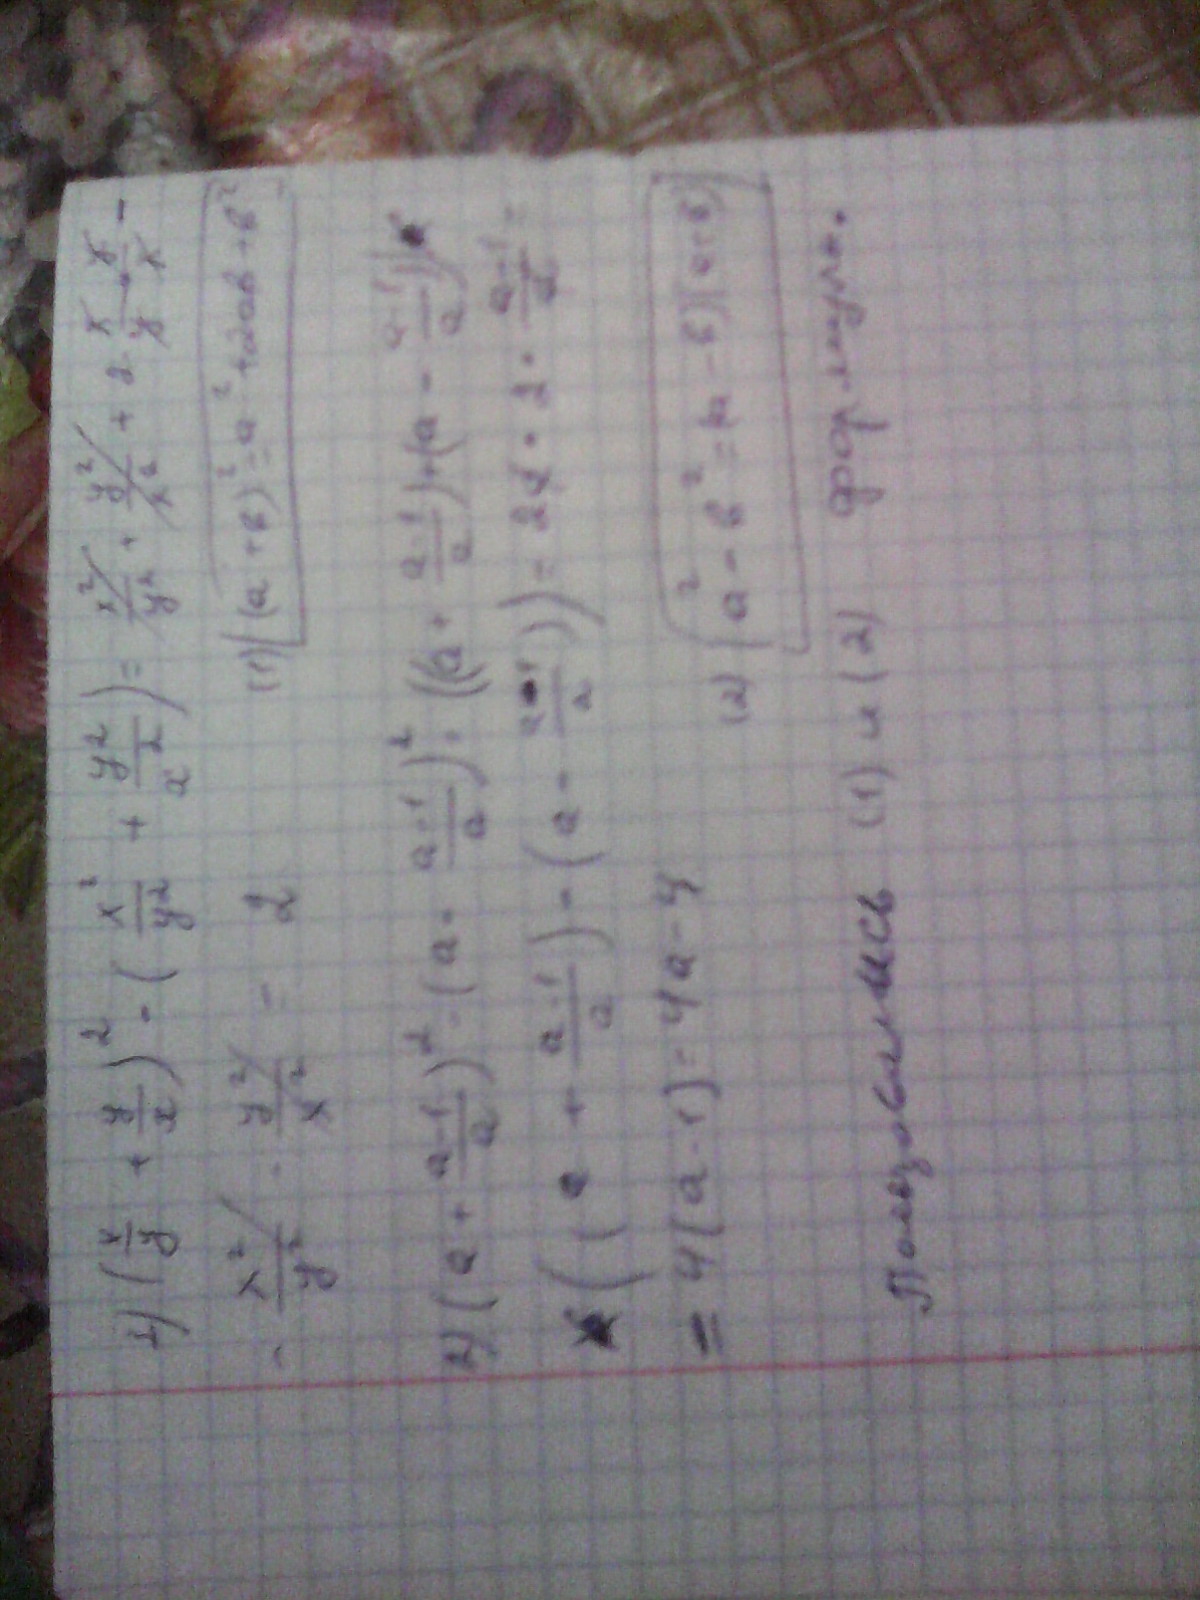 1) (x/y + y/x)² - (x²/y² + y²/x²) = x²/y² + y²/x² + 2·x/y·y/x -
- x²/y² - y²/x² = 2
(1) (a+в)² = a² + 2aв + в²
2) (a + a-1/a)² - (a - a-1/a)² = ((a + a-1/a) + (a - a-1/a))
((a + a-1/a) - (a - a-1/a)) = 2a · 2 · a-1/a =
= 4(a-1) = 4a-4
(2) a² - в² = (a-в)(a+в)
Пользовались (1) и (2) формул.